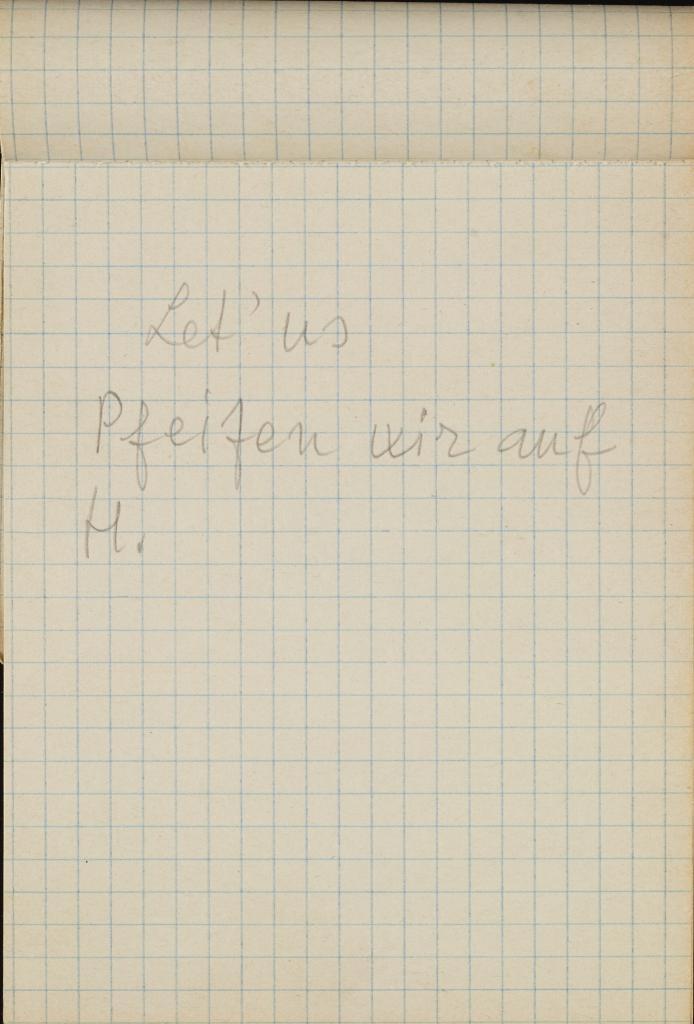 Let' us
Pfeifen wir auf
H.